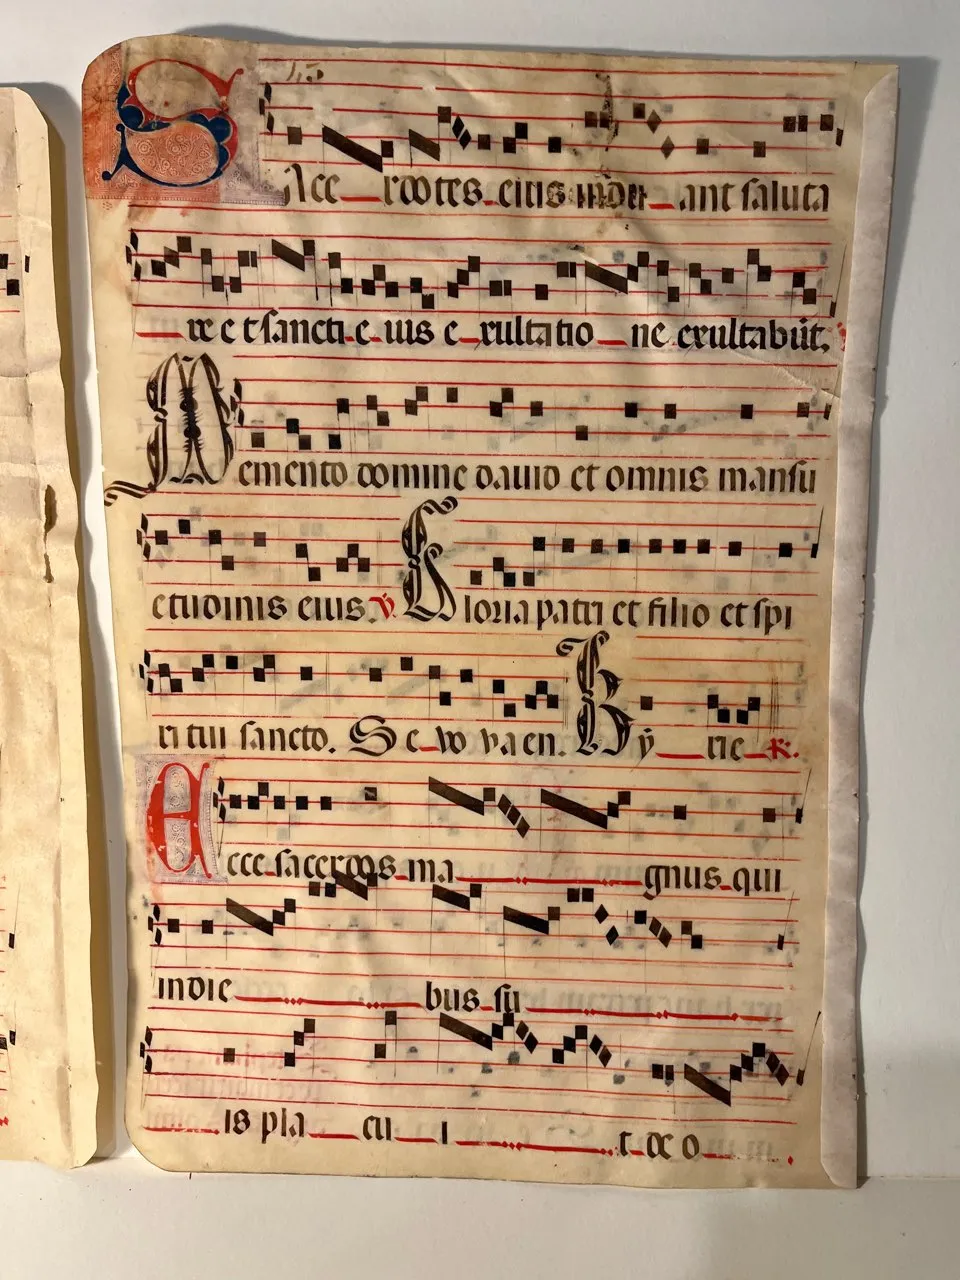 SAce rdotes eius indu ant saluta
re et sancti e ius e xultatio ne exultabūt.
Memento domine dauid et omnis mansu
etudinis eius. ℣. Gloria patri et filio et spi
ritui sancto. Se vo vaen. Ky rie ℟.
Ecce sacerdos ma gnus qui
indie bus su
is pla cu i t deo